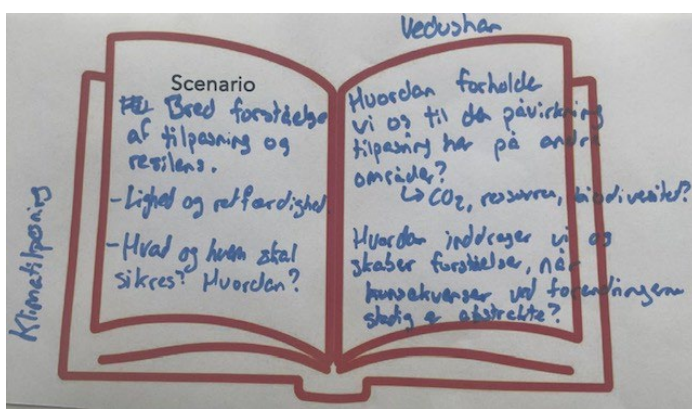 Vedushan
Klimatilpasning
Scenario
Bred forståelse
af tilpasning og
resiliens.
- Lighed og retfærdighed.
- Hvad og hvem skal
sikres? Hvordan?
Hvordan forholder
vi os til den påvirkning
tilpasning har på andre
områder?
↳ CO2, ressourcer, biodiversitet?
Hvordan inddrager vi og
skaber forståelser, når
konsekvenser ved forandringerne
stadig er abstrakte?